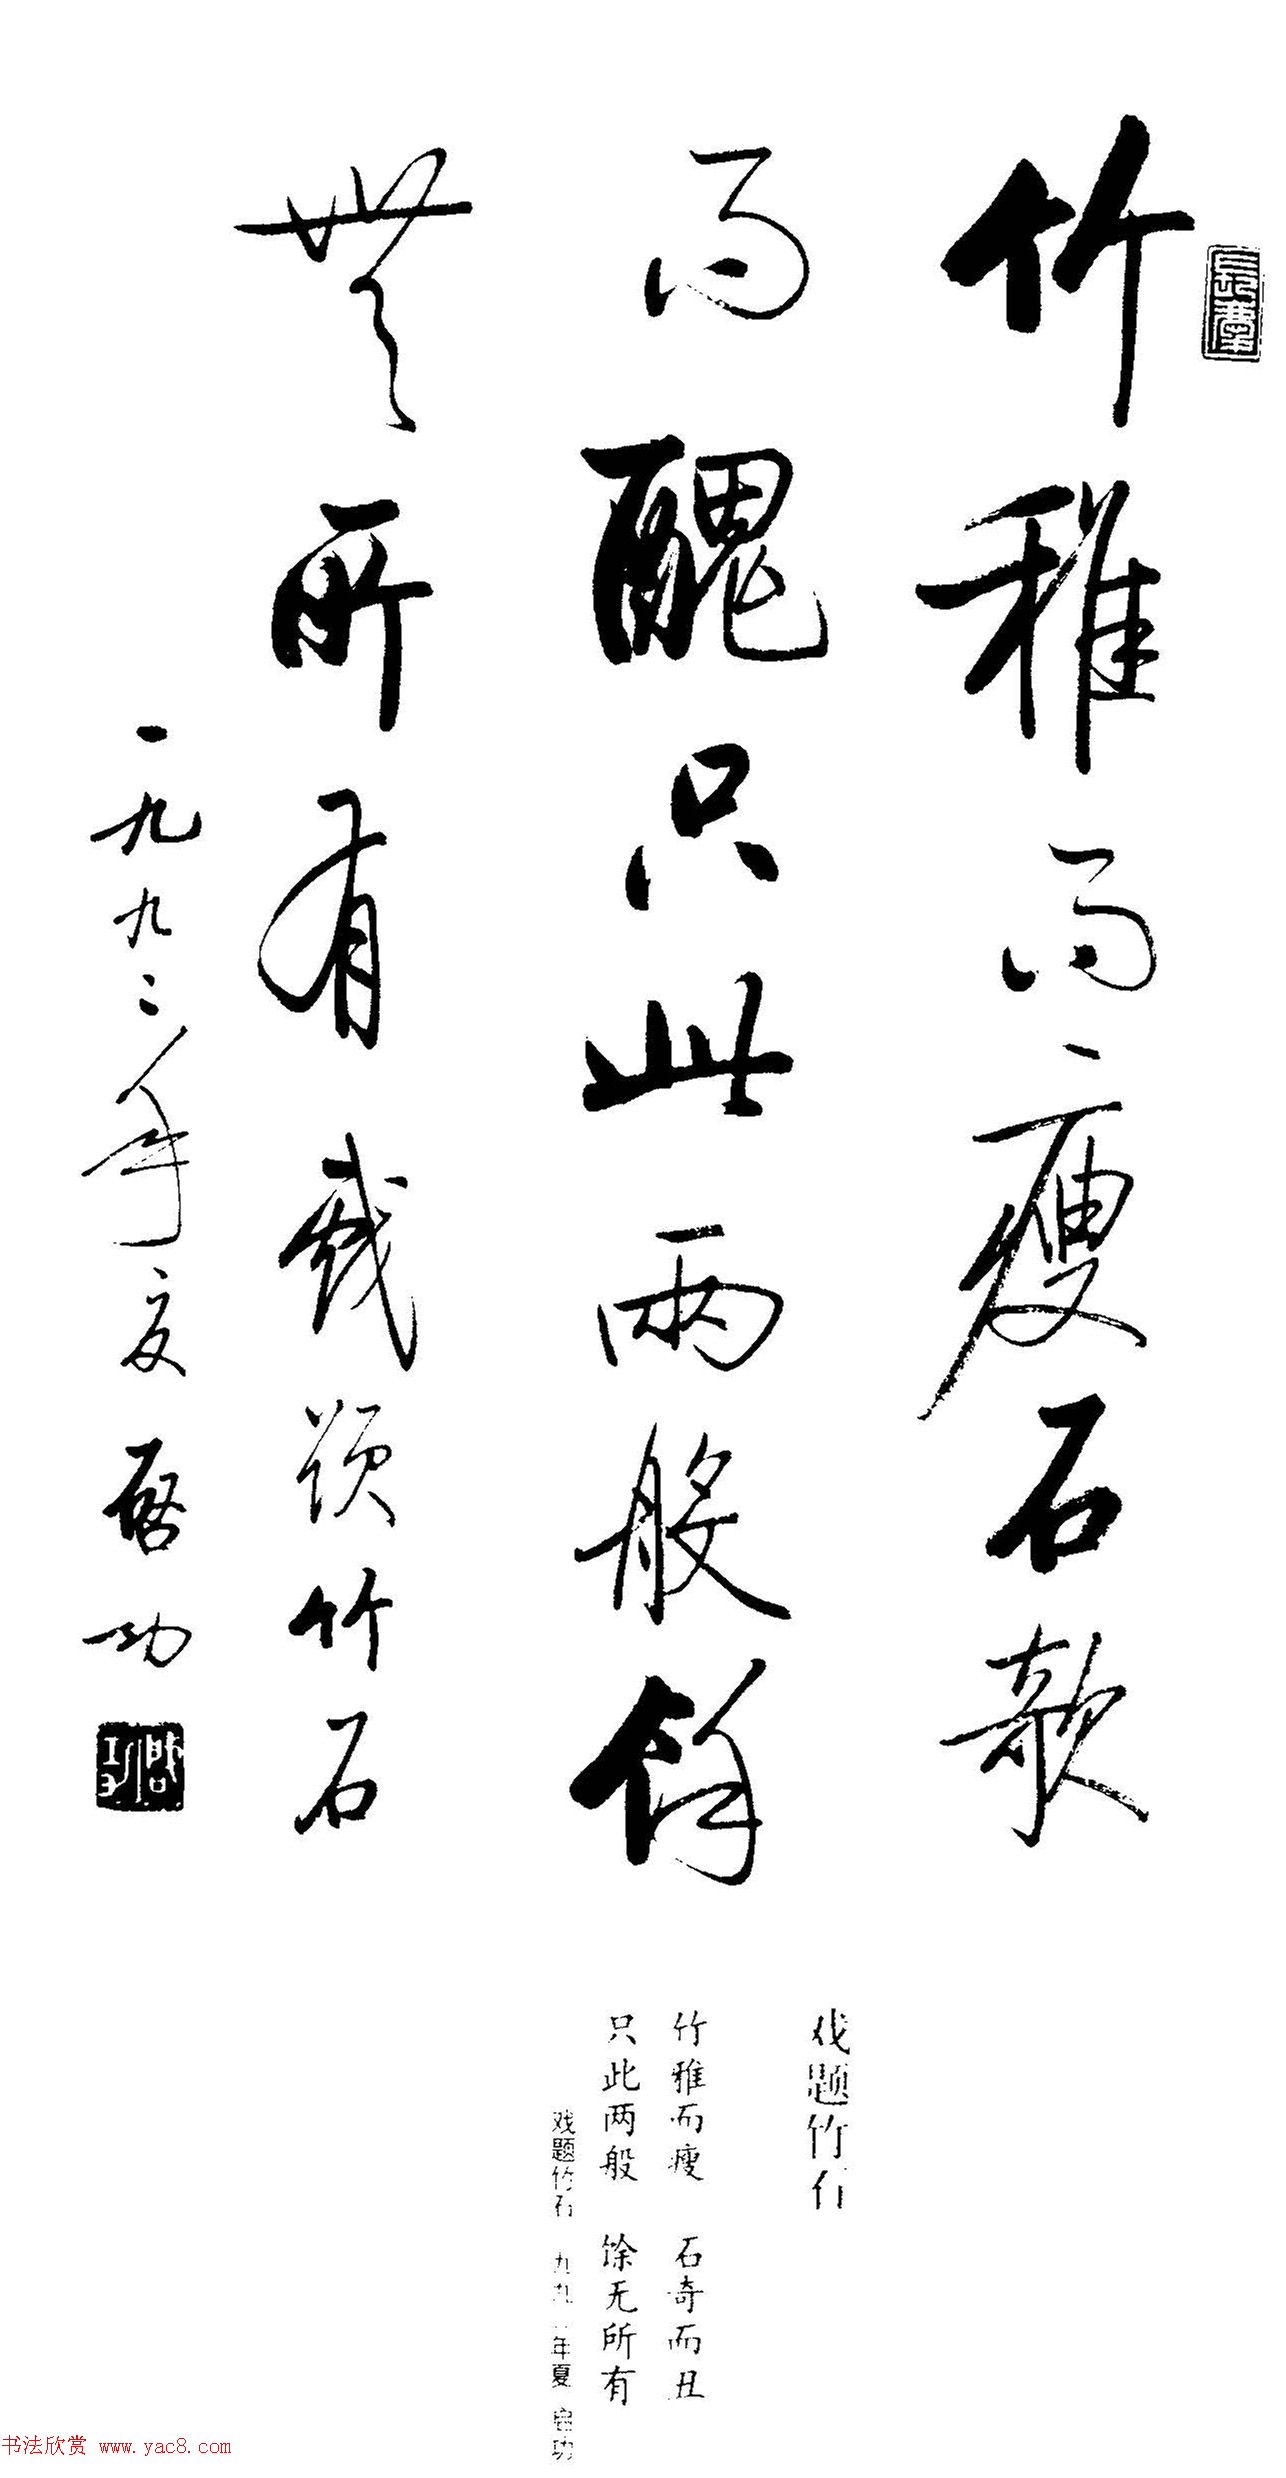 竹雅而瘦石欹
而醜只此兩般餘
無所有戲題竹石
一九九二年夏 啓功
啓功
戏题竹石
竹雅而瘦 石奇而丑
只此两般 馀无所有
戏题竹石 九九 年夏 启功
书法欣赏 www.yac8.com